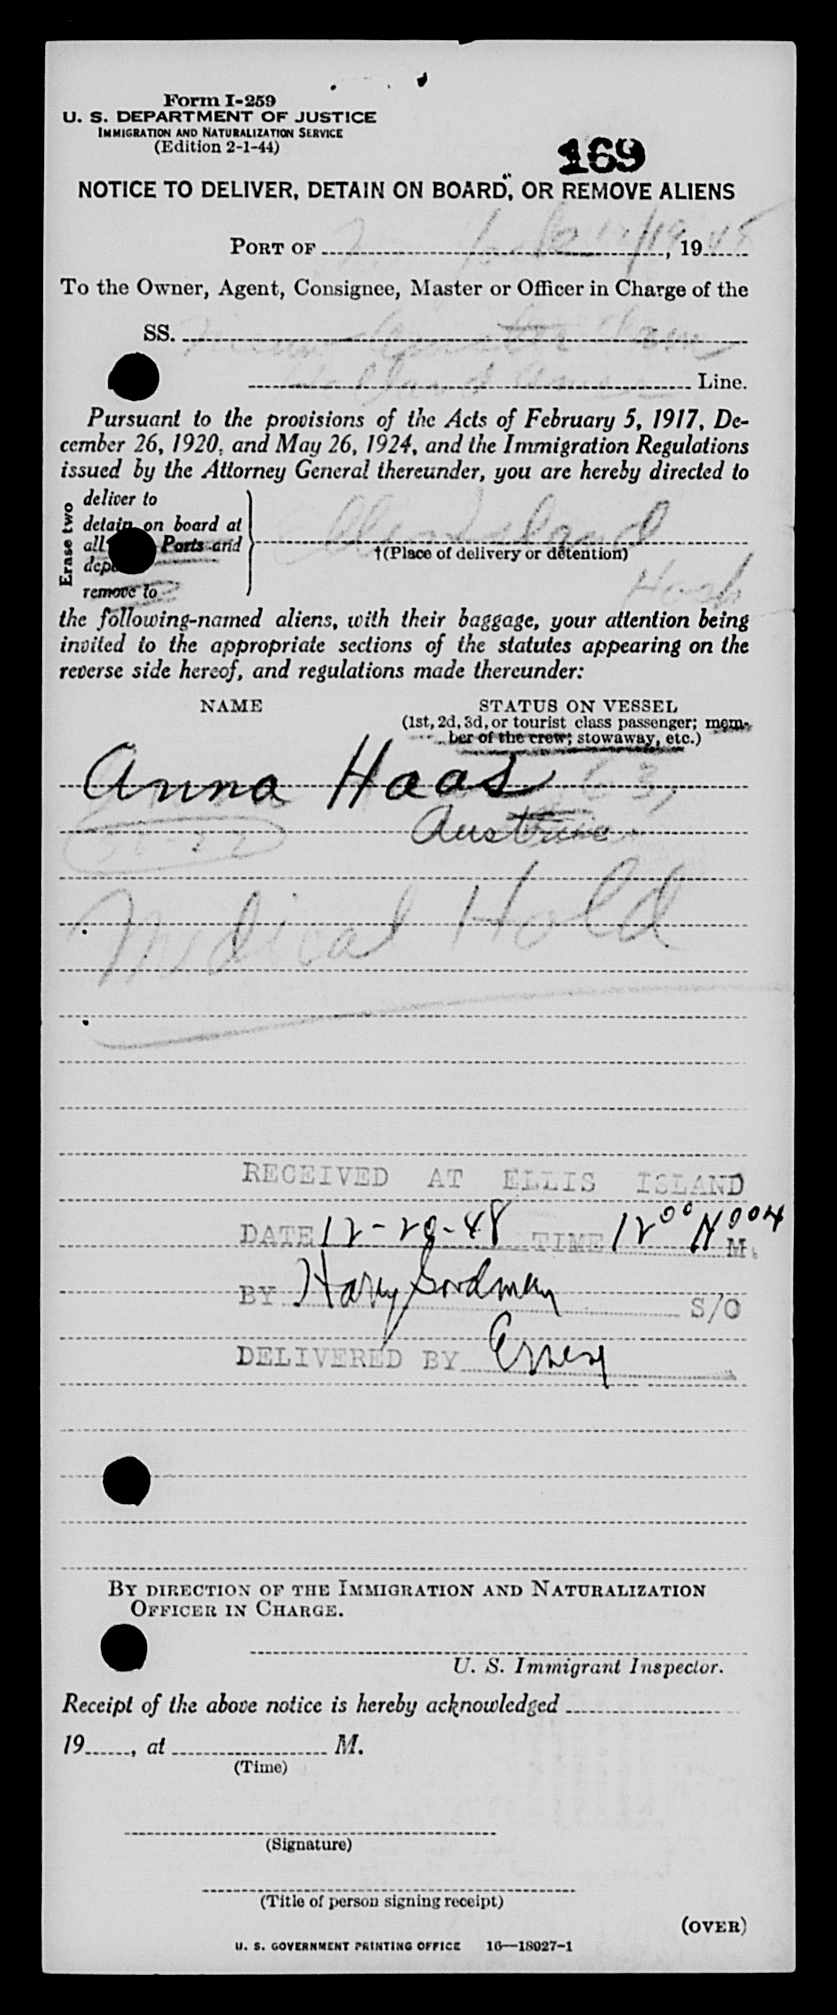 Form I-259
U. S. DEPARTMENT OF JUSTICE
IMMIGRATION AND NATURALIZATION SERVICE
(Edition 2-1-44)
169
NOTICE TO DELIVER, DETAIN ON BOARD, OR REMOVE ALIENS
PORT OF , 19 48
To the Owner, Agent, Consignee, Master or Officer in Charge of the
SS. Nieuw Amsterdam
Holland Amer Line.
Pursuant to the provisions of the Acts of February 5, 1917, De-
cember 26, 1920, and May 26, 1924, and the Immigration Regulations
issued by the Attorney General thereunder, you are hereby directed to
Erase two
deliver to
detain on board at
all Ports and
remove to
Ellis Island
†(Place of delivery or detention)
Hosp
the following-named aliens, with their baggage, your attention being
invited to the appropriate sections of the statutes appearing on the
reverse side hereof, and regulations made thereunder:
NAME STATUS ON VESSEL
(1st, 2d, 3d, or tourist class passenger; mem-
ber of the crew; stowaway, etc.)
Anna Haas 63,
Austria
Medical Hold
RECEIVED AT ELLIS ISLAND
DATE 12-20-48 TIME 12 00 Noon M.
BY Harry Goodman S/O
DELIVERED BY
BY DIRECTION OF THE IMMIGRATION AND NATURALIZATION
OFFICER IN CHARGE.
U. S. Immigrant Inspector.
Receipt of the above notice is hereby acknowledged
19 , at M.
(Time)
(Signature)
(Title of person signing receipt)
(OVER)
U. S. GOVERNMENT PRINTING OFFICE 16—18027-1